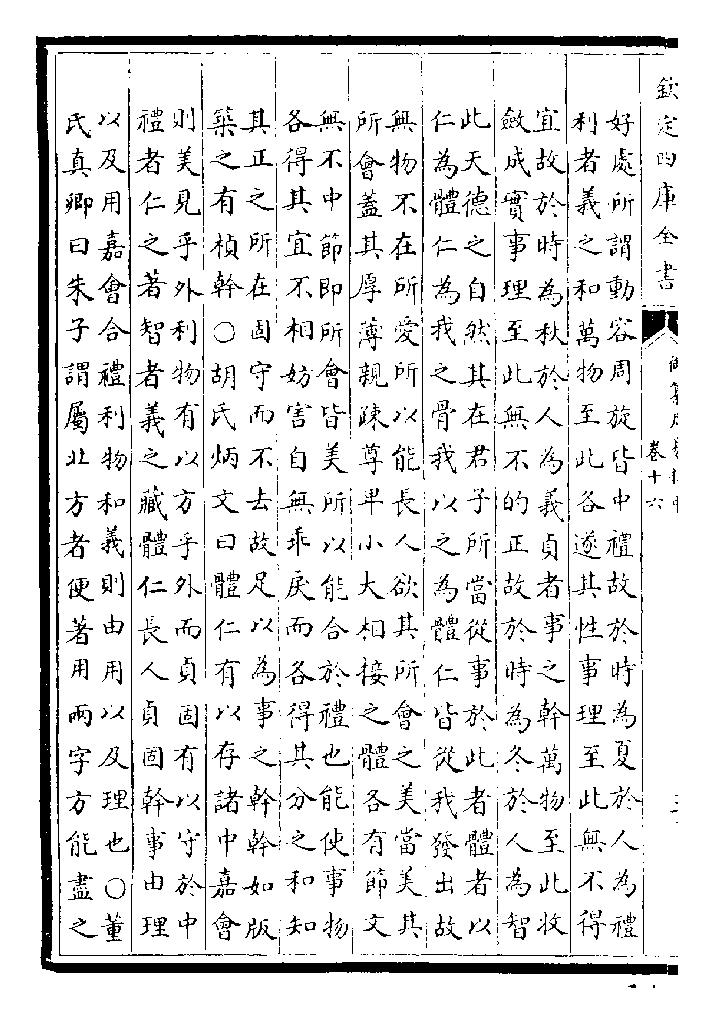 欽定四庫全書
卷十六
好處所謂動容周旋皆中禮故於時為夏於人為禮
利者義之和萬物至此各遂其性事理至此無不得
宜故於時為秋於人為義貞者事之幹萬物至此收
斂成實事理至此無不的正故於時為冬於人為智
此天德之自然其在君子所當從事於此者體者以
仁為體仁為我之骨我以之為體仁皆從我發出故
無物不在所愛所以能長人欲其所會之美當美其
所會蓋其厚薄親疎尊卑小大相接之體各有節文
無不中節即所會皆美所以能合於禮也能使事物
各得其宜不相妨害自無乖戾而各得其分之和知
其正之所在固守而不去故足以為事之幹幹如版
築之有楨幹○胡氏炳文曰體仁有以存諸中嘉會
則美見乎外利物有以方乎外而貞固有以守於中
禮者仁之著智者義之藏體仁長人貞固幹事由理
以及用嘉會合禮利物和義則由用以及理也○董
氏真卿曰朱子謂屬北方者便著用兩字方能盡之